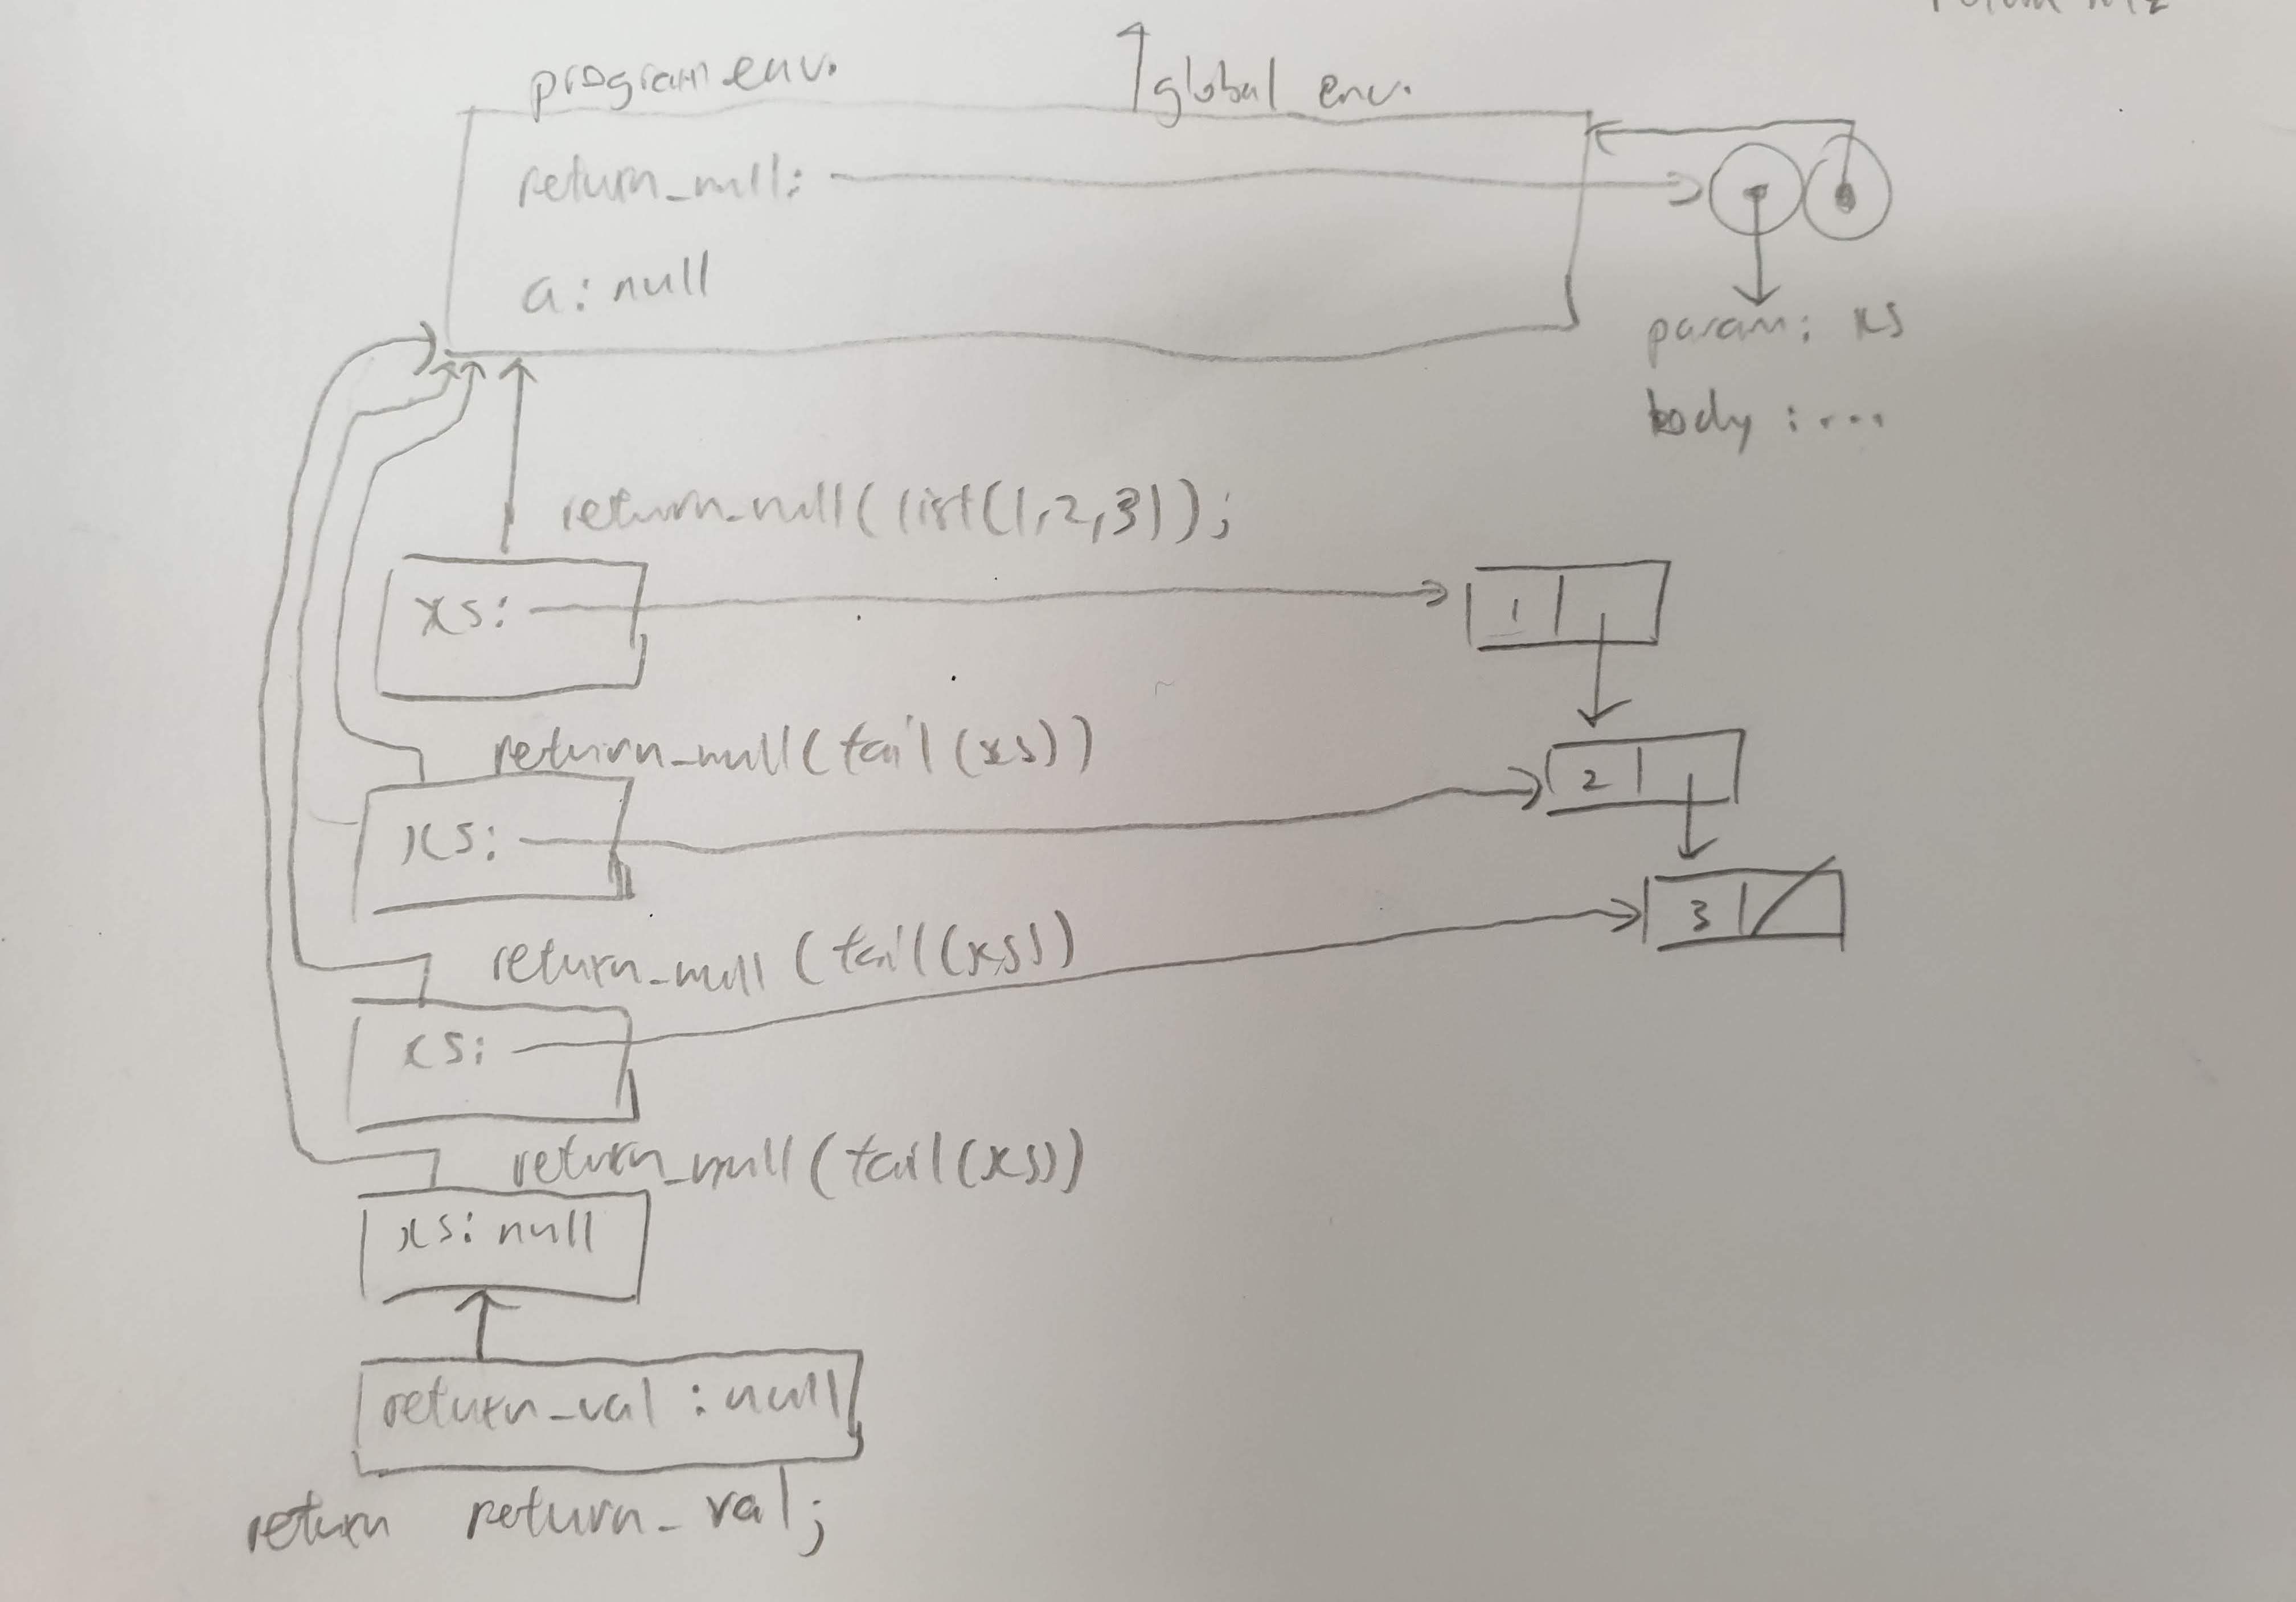 program env.
global env.
return_null:
a: null
param: xs
body : ...
return_null(list(1,2,3));
xs:
1
return_null(tail(xs))
2
xs:
3
return_null(tail(xs))
xs:
return_null(tail(xs))
xs: null
return_val : null
return return_val;